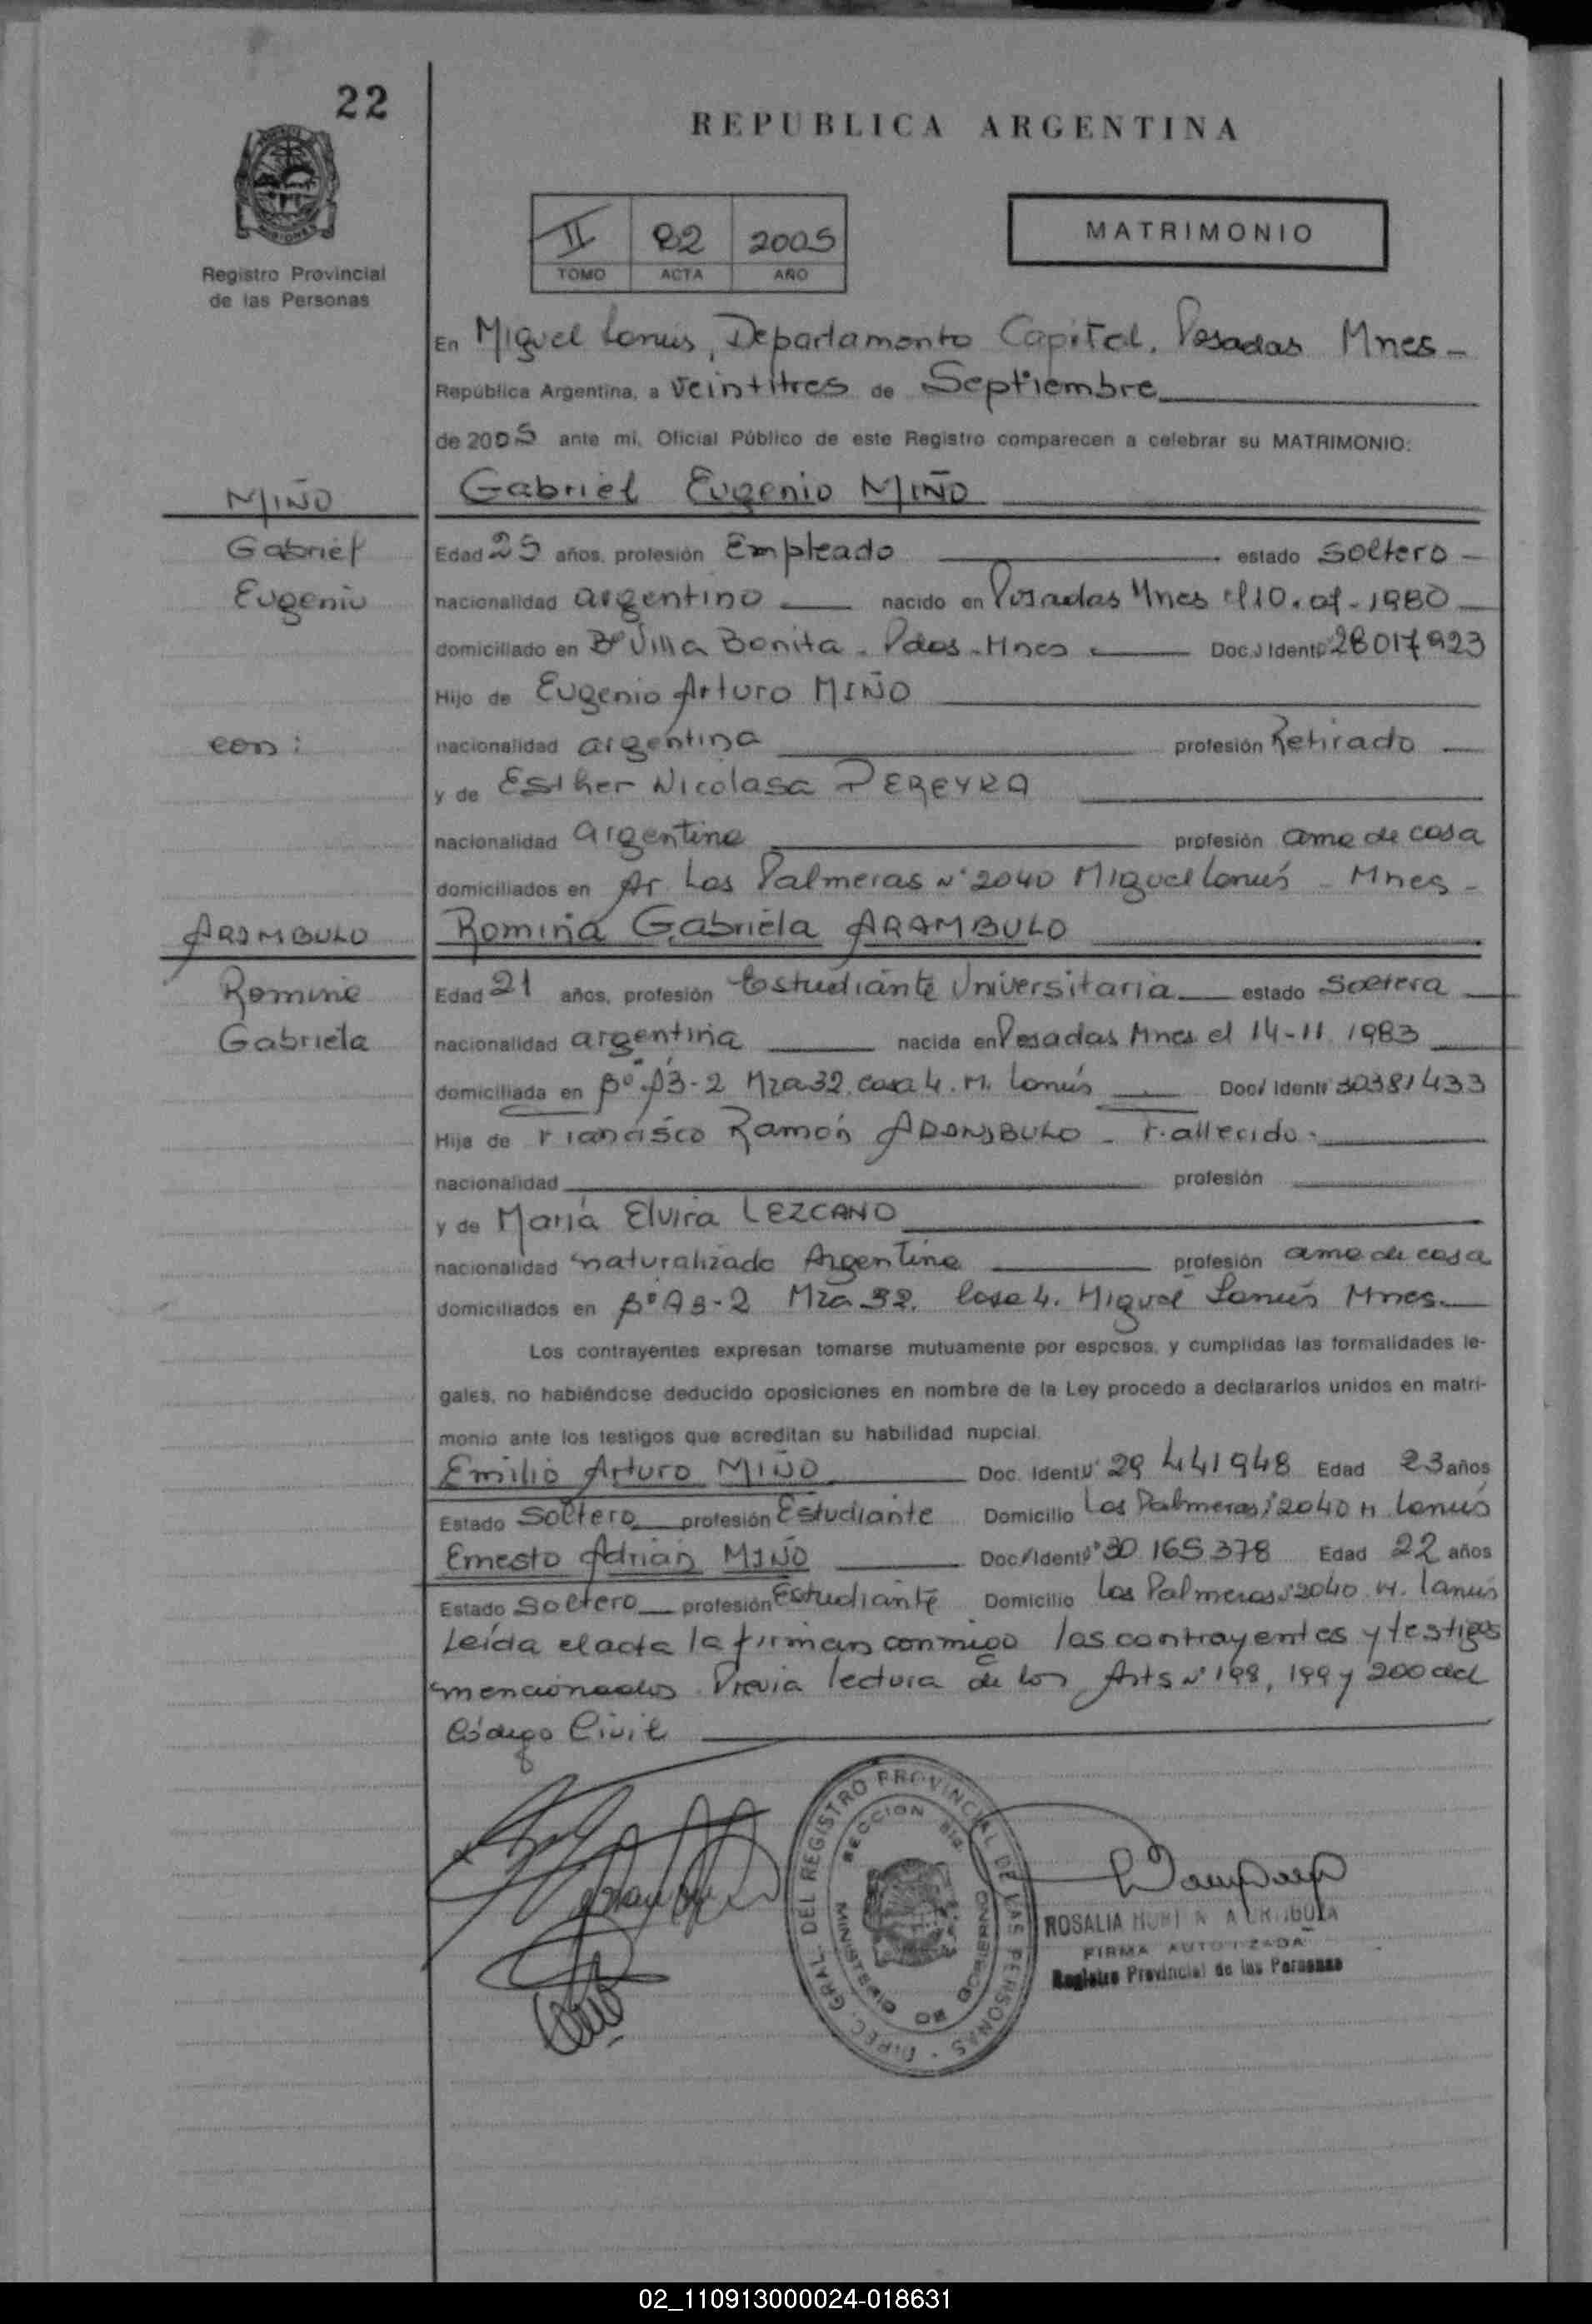 22
REPUBLICA ARGENTINA
MATRIMONIO
II 82 2005
TOMO ACTA AÑO
Registro Provincial
de las Personas
En Miguel Lanus, Departamento Capital. Posadas Mnes -
República Argentina, a veintitres de Septiembre
de 2005 ante mí, Oficial Público de este Registro comparecen a celebrar su MATRIMONIO:
MIÑO
Gabriel Eugenio MIÑO
Gabriel
Edad 25 años, profesión Empleado estado soltero -
Eugenio
nacionalidad argentino nacido en Posadas Mnes el 10. - 1980
domiciliado en Bº Villa Bonita - Pdas - Mnes Doc. Ident. 28017923
Hijo de Eugenio Arturo MIÑO
con:
nacionalidad argentina profesión Retirado
y de Esther Nicolasa PEREYRA
nacionalidad argentina profesión ama de casa
domiciliados en Av Las Palmeras Nº 2040 Miguel Lanús - Mnes -
ARAMBULO
Romina Gabriela ARAMBULO
Romina
Edad 21 años, profesión Estudiante Universitaria estado soltera
Gabriela
nacionalidad argentina nacida en Posadas Mnes el 14-11 1983
domiciliada en Bº A3-2 Mza 32. casa 4. M. Lanús Doc. Ident. 30381433
Hija de Francisco Ramón ARAMBULO - Fallecido.
nacionalidad profesión
y de María Elvira LEZCANO
nacionalidad naturalizada Argentina profesión ama de casa
domiciliados en Bº A3-2 Mza 32. Casa 4. Miguel Lanús Mnes.
Los contrayentes expresan tomarse mutuamente por esposos, y cumplidas las formalidades le-
gales, no habiéndose deducido oposiciones en nombre de la Ley procedo a declararlos unidos en matri-
monio ante los testigos que acreditan su habilidad nupcial.
Emilio Arturo MIÑO Doc. Ident. Nº 29 441948 Edad 23 años
Estado Soltero profesión Estudiante Domicilio Las Palmeras 2040 M. Lanús
Ernesto Adrián MIÑO Doc. Ident. Nº 30 165.378 Edad 22 años
Estado Soltero profesión Estudiante Domicilio Las Palmeras 2040 M. Lanús
Leída el acta la firman conmigo los contrayentes y testigos
mencionados. Previa lectura de los Arts Nº 198, 199 y 200 del
Código Civil
DIREC. GRAL. DEL REGISTRO PROVINCIAL DE LAS PERSONAS
SECCION
MINISTERIO DE GOBIERNO
ROSALIA
FIRMA AUTORIZADA
Registro Provincial de las Personas
02_110913000024-018631